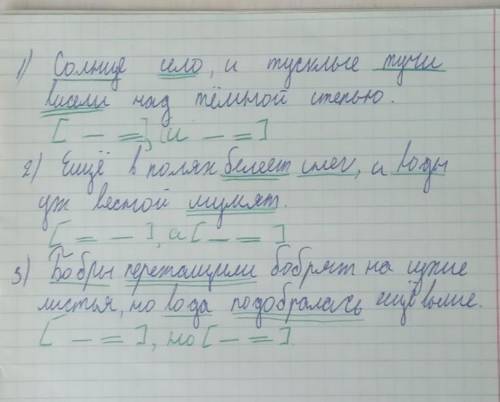 1) Солнце село, и тусклые тучи
висели над тёмной степью.
[ — = ], и — = ]
2) Ещё в полях белеет снег, а воды
уж весной шумят.
[ = — ], а [ — = ]
3) Бобры перетащили бобрят на сухие
листья, но вода подобралась ещё выше.
[ — = ], но [ — = ].